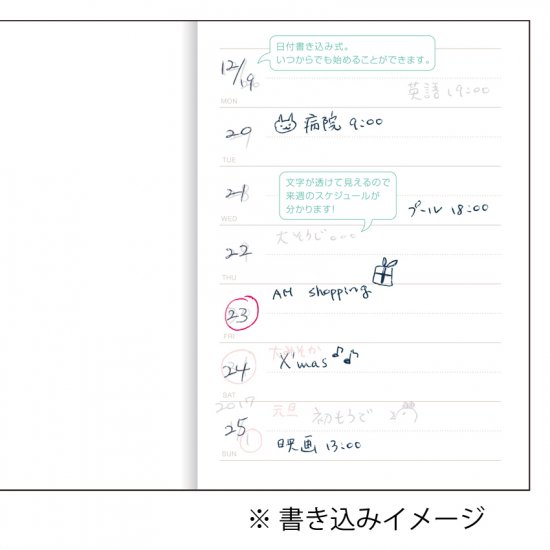 日付書き込み式。
いつからでも始めることができます。
12/19
英語 19:00
MON
20 病院 9:00
TUE
文字が透けて見えるので
来週のスケジュールが
分かります!
21
プール 18:00
WED
大そうじ
22
THU
AM shopping
23
FRI
大みそか
24 X'mas
SAT
2017
元旦 初もうで
25
1
映画 13:00
SUN
※ 書き込みイメージ